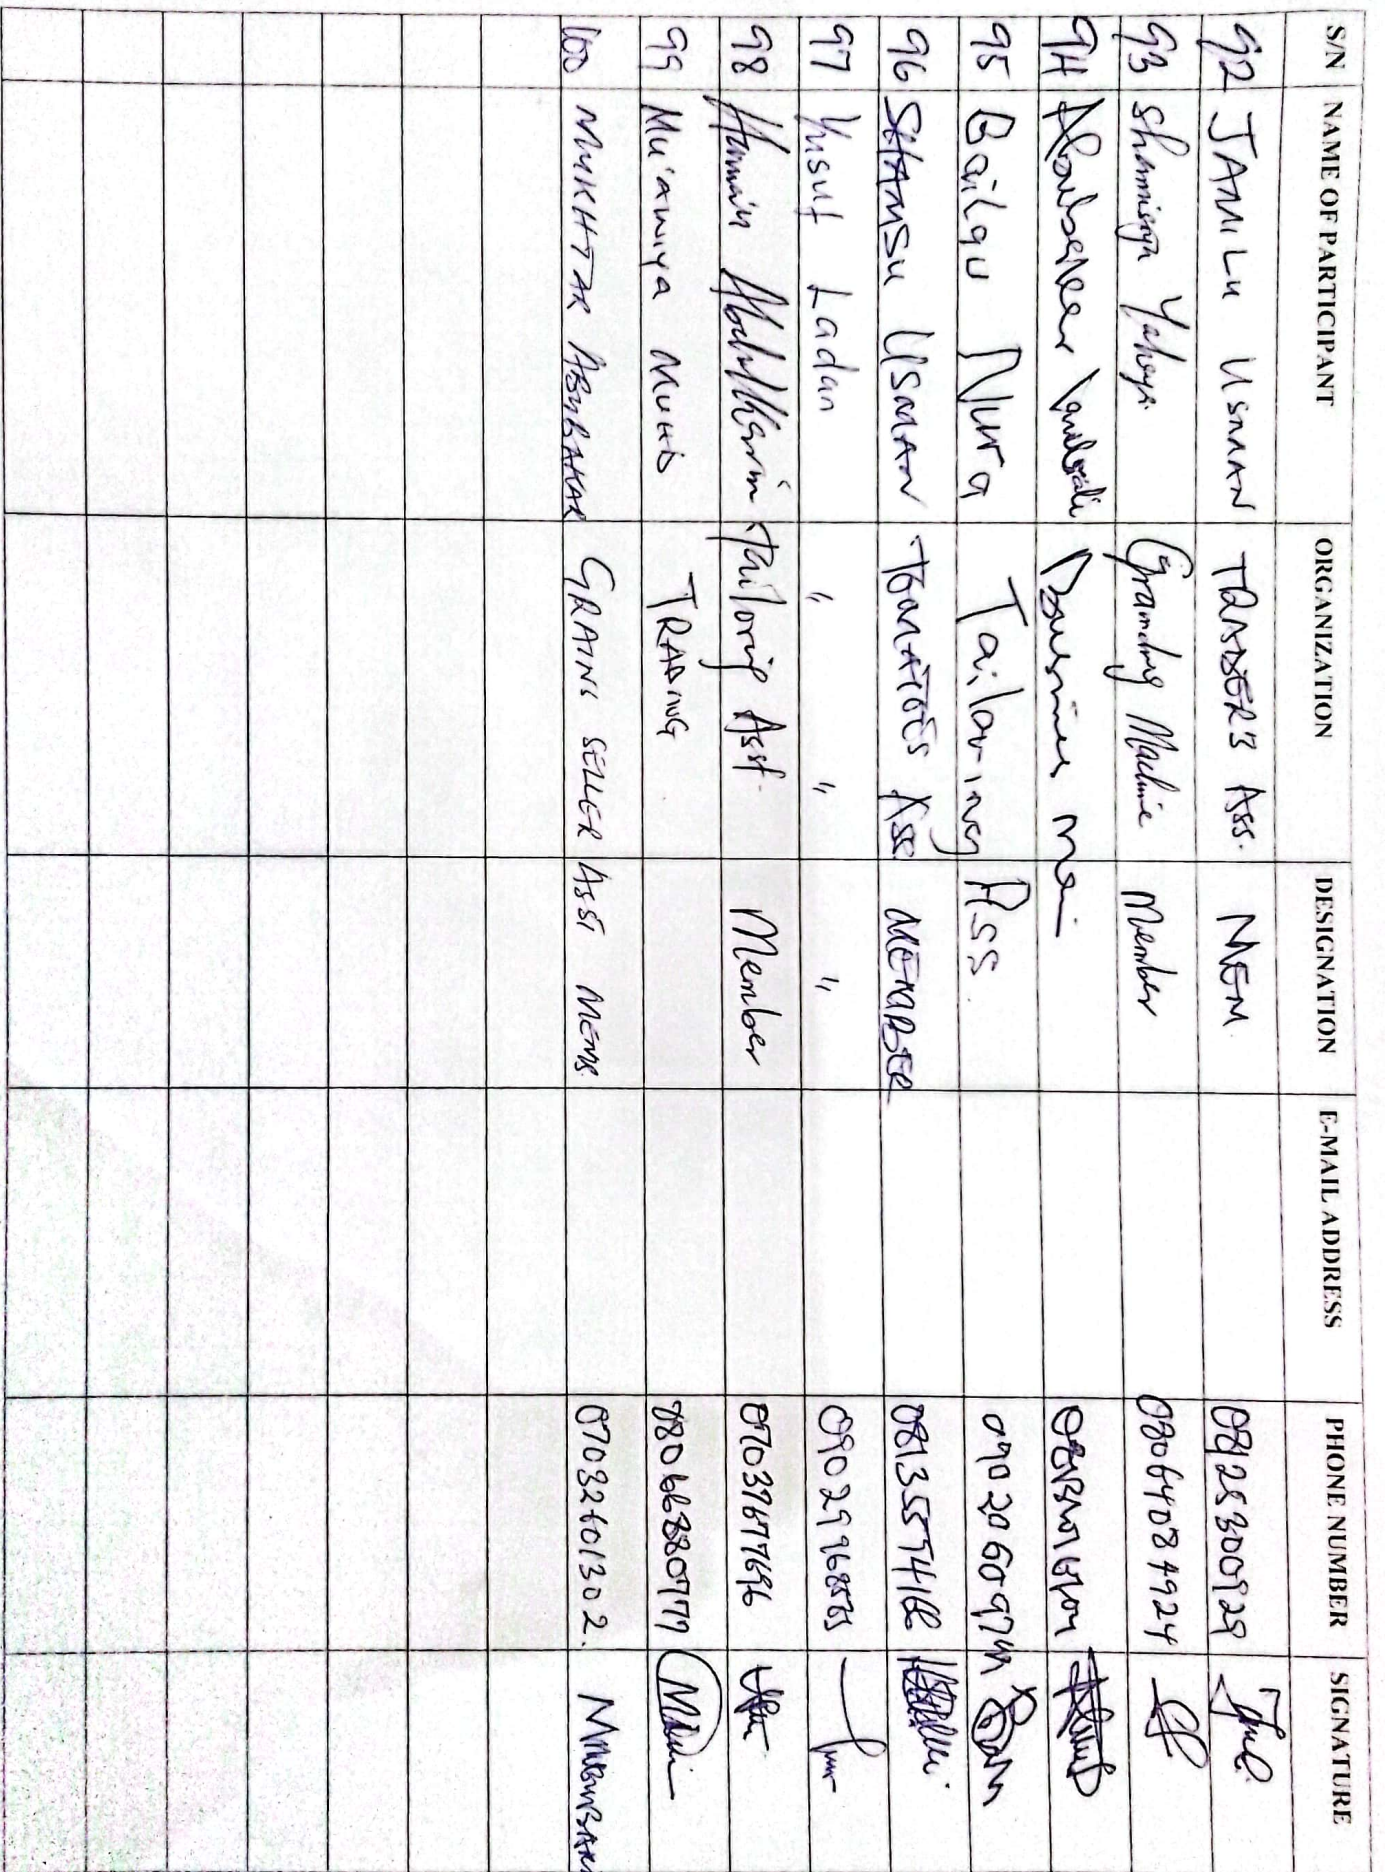 S/N NAME OF PARTICIPANT ORGANIZATION DESIGNATION E-MAIL ADDRESS PHONE NUMBER SIGNATURE
92 JAMILU USMAN TRADERS Ass. MEM. 08125300929
93 Shamsiyya Yahaya Grinding Machine Member 08064084924
94 Abubakar
95 Bailqu Nura Tailoring Ass 0902060
96 SHAMSU USMAN Ass MEMBER 08135574166
97 Yusuf Ladan " " " 0902996
98 Abdulkarim Tailoring Asst. Member 07037677696
99 Mu'awiya MUHD TRADING 08066880777
100 MUKHTAR ABUBAKAR GRAINS SELLER ASST MEMB. 07032601302.